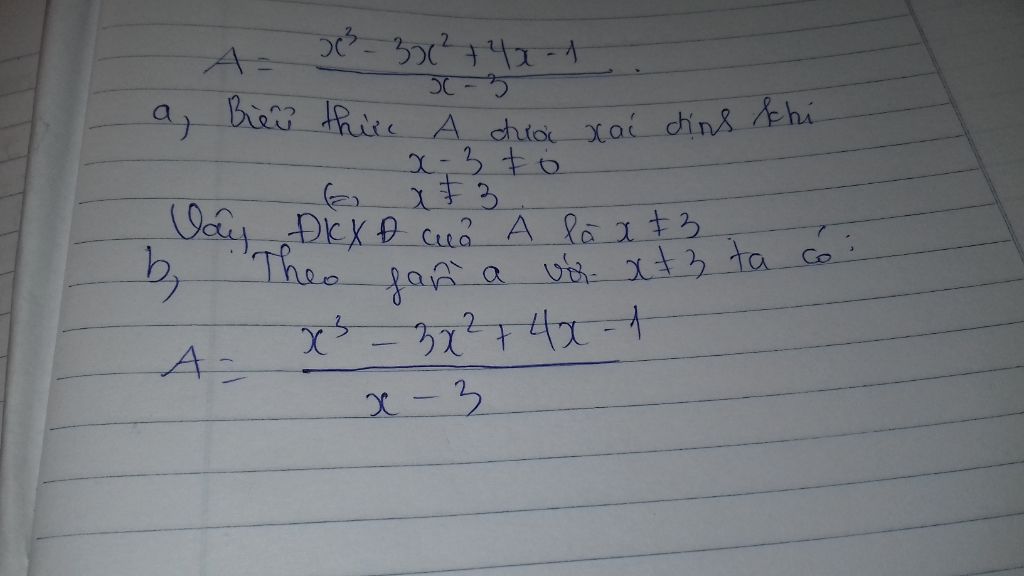 A = x³ - 3x² + 4x - 1 / x - 3 .
a, Biểu thức A được xác định khi
x - 3 ≠ 0
⇔ x ≠ 3.
Vậy ĐKXĐ của A là x ≠ 3
b, Theo phần a với x ≠ 3 ta có:
A = x³ - 3x² + 4x - 1 / x - 3